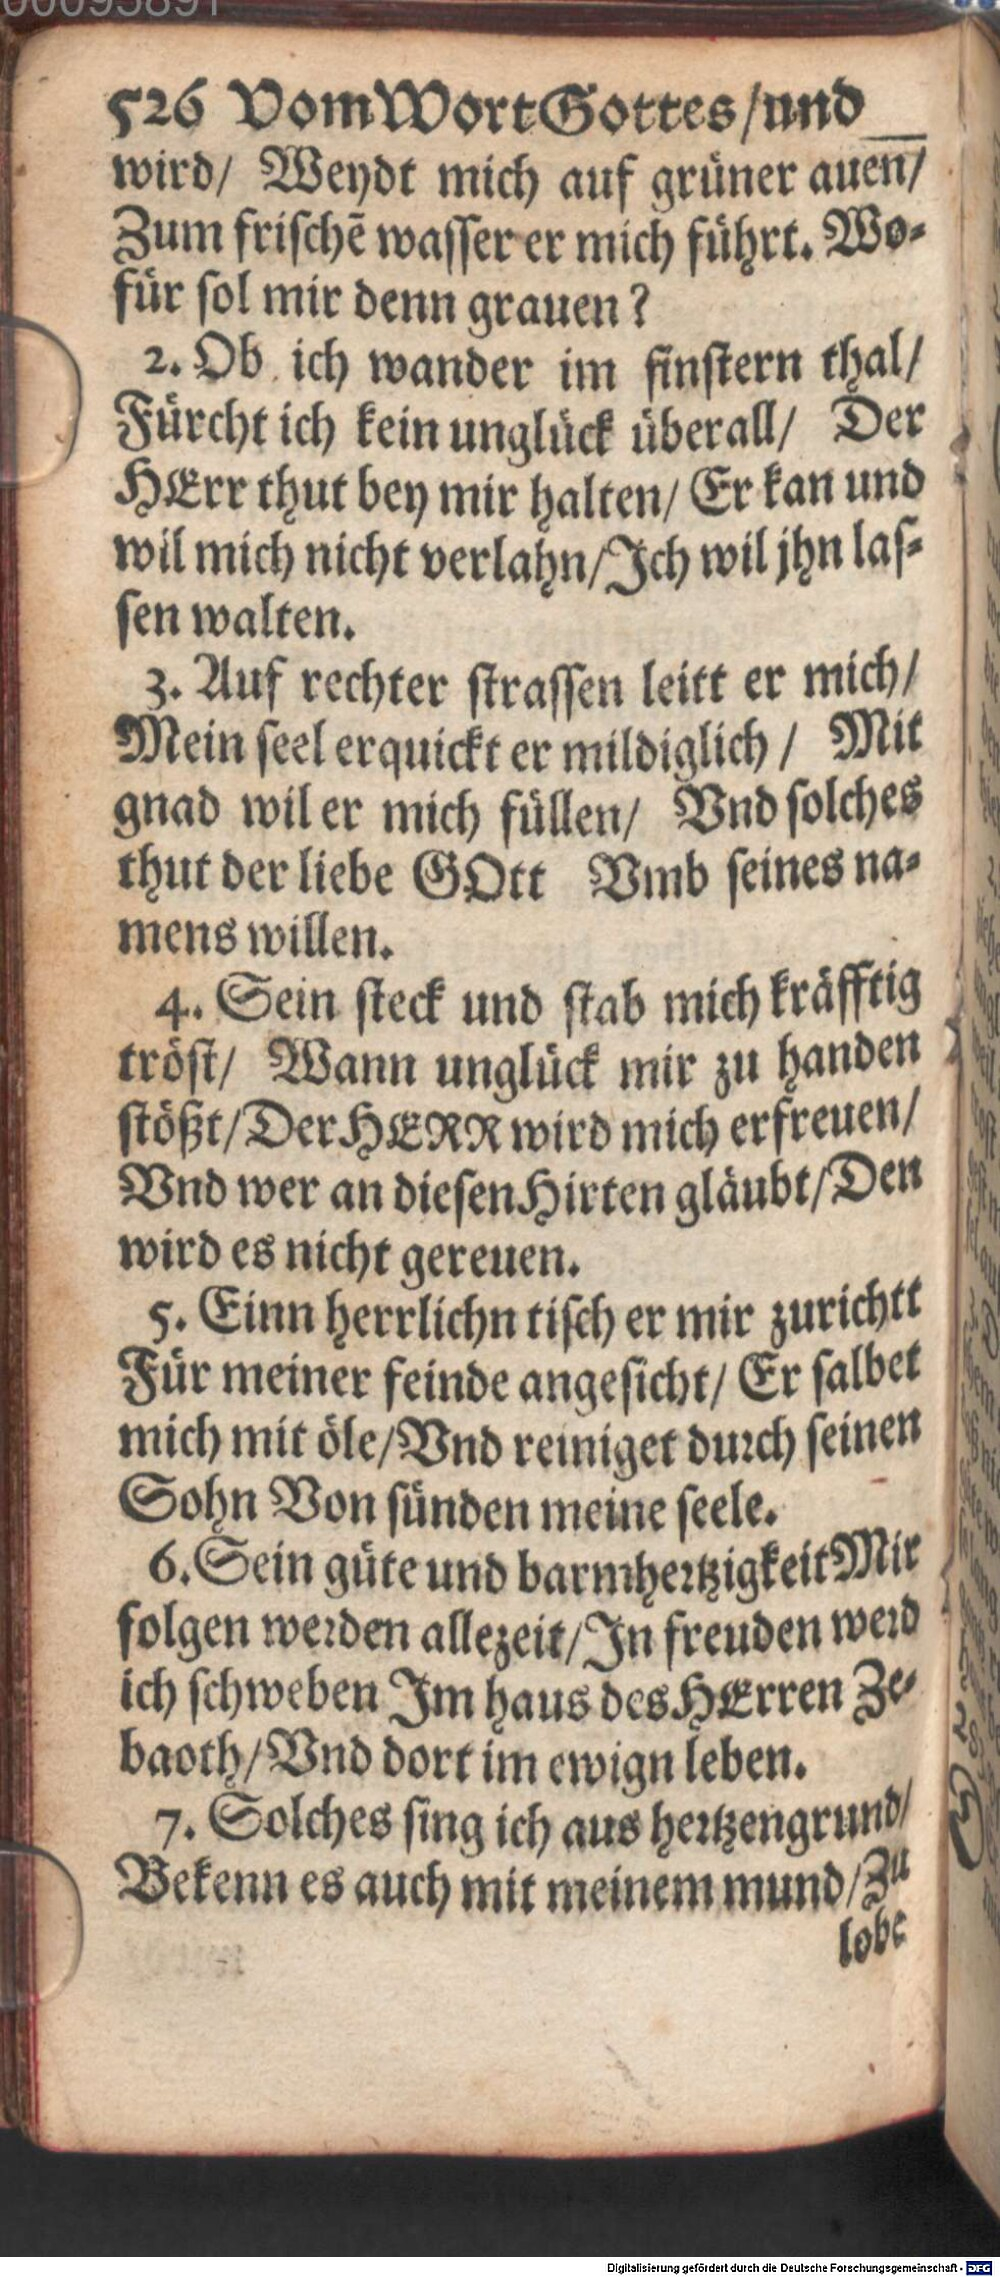 00095891
526 Vom Wort Gottes/und
wird/ Weydt mich auf grüner auen/
Zum frischẽ wasser er mich führt. Wo-
für sol mir denn grauen?
2. Ob ich wander im finstern thal/
Fürcht ich kein unglück überall/ Der
HErr thut bey mir halten/ Er kan und
wil mich nicht verlahn/Ich wil jhn las-
sen walten.
3. Auf rechter strassen leitt er mich/
Mein seel erquickt er mildiglich/ Mit
gnad wil er mich füllen/ Vnd solches
thut der liebe GOtt Vmb seines na-
mens willen.
4. Sein steck und stab mich kräfftig
tröst/ Wann unglück mir zu handen
stößt/Der HERR wird mich erfreuen/
Vnd wer an diesen Hirten gläubt/Den
wird es nicht gereuen.
5. Einn herrlichn tisch er mir zurichtt
Für meiner feinde angesicht/ Er salbet
mich mit öle/Vnd reiniget durch seinen
Sohn Von sünden meine seele.
6. Sein güte und barmhertzigkeit Mir
folgen werden allezeit/In freuden werd
ich schweben Im haus des HErren Ze-
baoth/Vnd dort im ewign leben.
7. Solches sing ich aus hertzengrund/
Bekenn es auch mit meinem mund/Zu
lobe
Digitalisierung gefördert durch die Deutsche Forschungsgemeinschaft - DFG